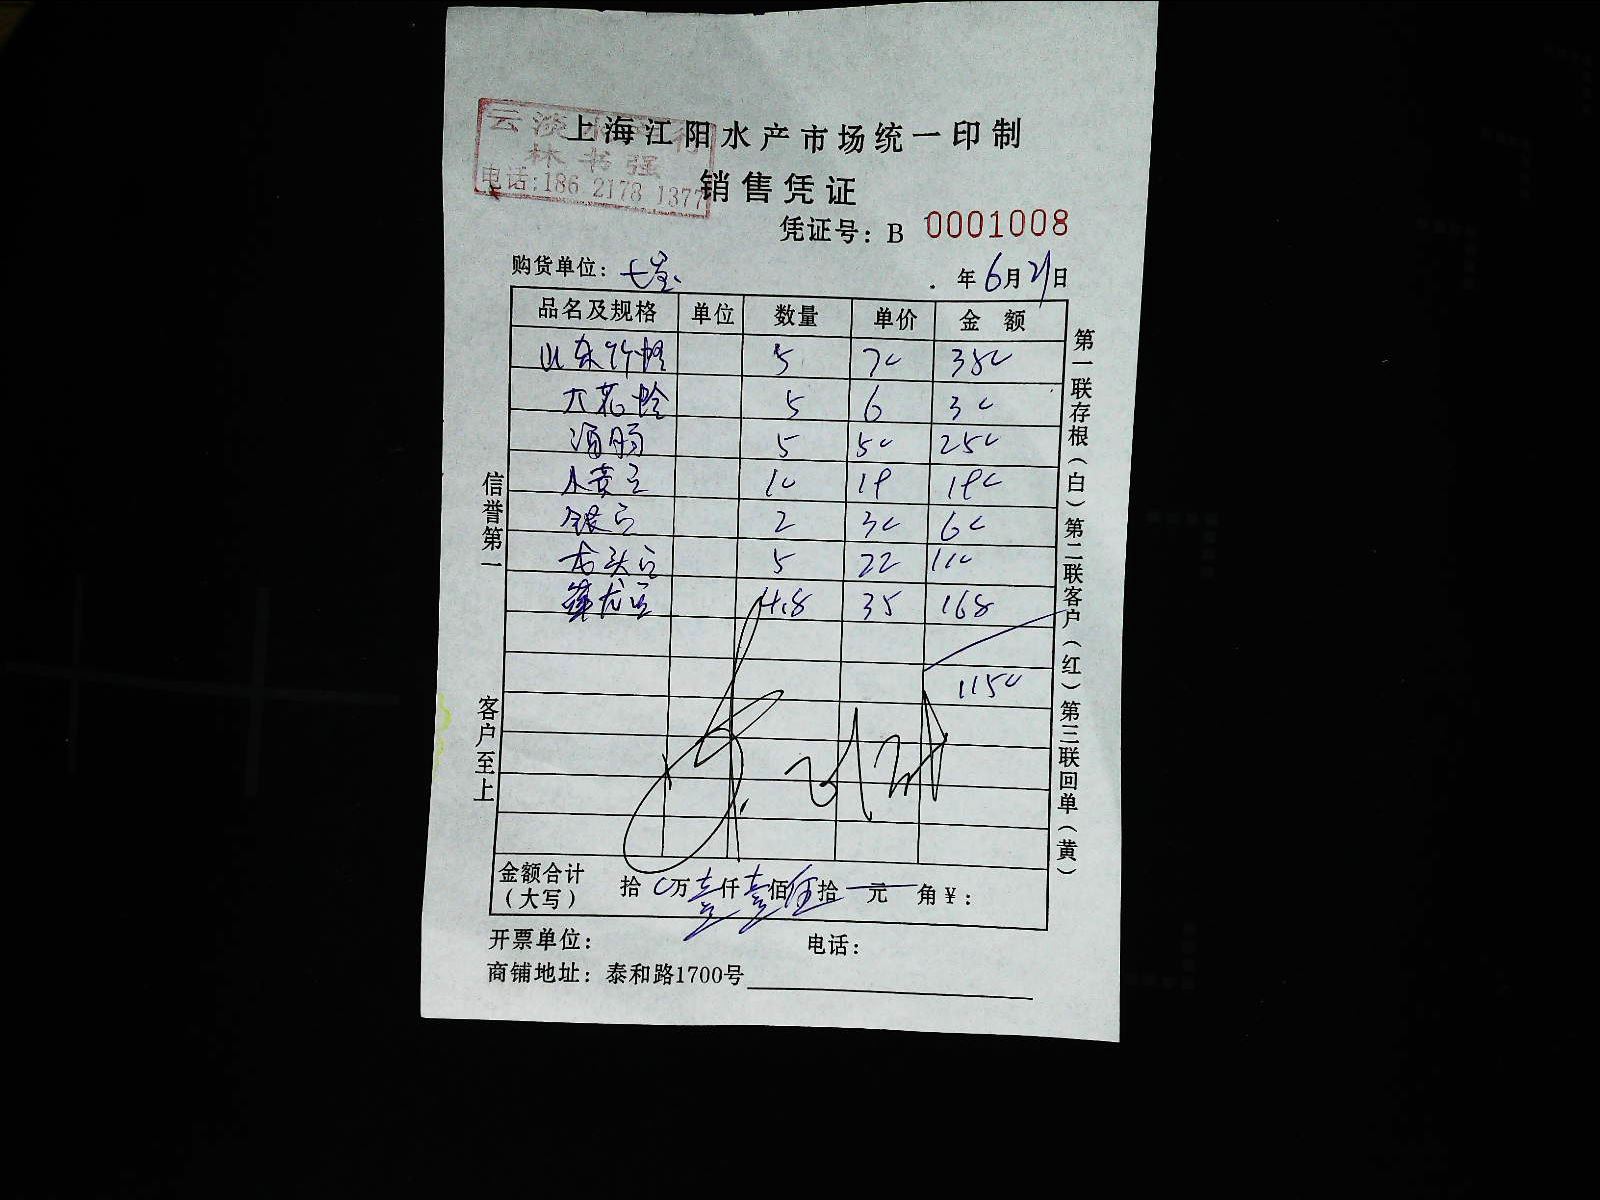 云淡水产行
林书强
电话:186 2178 1377
上海江阳水产市场统一印制
销售凭证
凭证号: B 0001008
购货单位: 七宝 年 6 月 21 日
品名及规格 单位 数量 单价 金额
山东竹蛏 5 70 350
大花蛤 5 6 30
海肠 5 50 250
小黄 10 19 190
银 2 30 60
龙头 5 22 110
笋龙 4.8 35 168
1150
金额合计(大写) 拾 0 万 壹 仟 壹 佰 伍 拾 元 角 ¥:
开票单位: 电话:
商铺地址: 泰和路1700号
信誉第一 客户至上
第一联存根(白) 第二联客户(红) 第三联回单(黄)